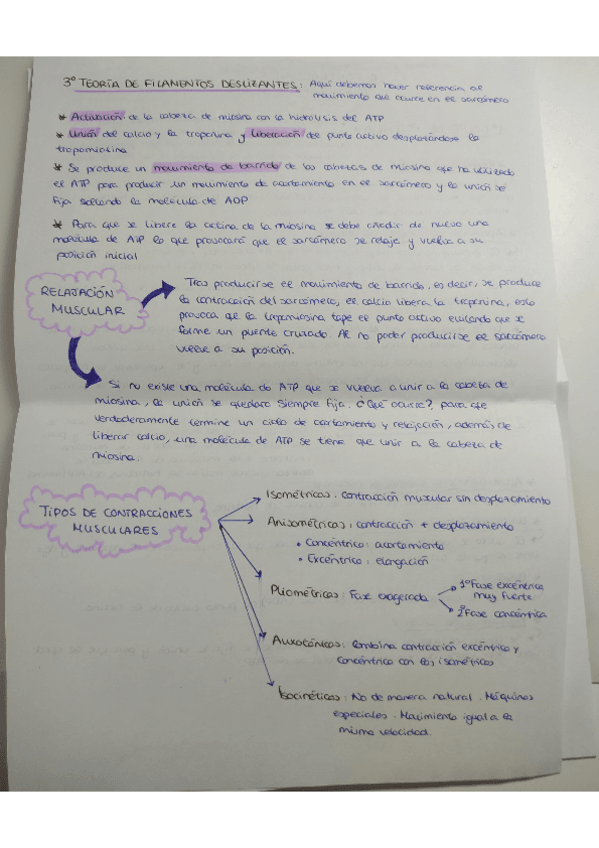 3º TEORÍA DE FILAMENTOS DESLIZANTES: Aquí debemos hacer referencia al
movimiento que ocurre en el sarcómero
* Activación de la cabeza de miosina con la hidrolisis del ATP
* Unión del calcio y la troponina y liberación del punto activo desplazándose la
tropomiosina
* Se produce un movimiento de barrido de las cabezas de miosina que ha utilizado
el ATP para producir un movimiento de acortamiento en el sarcómero y la unión se
fija soltando la molécula de ADP
* Para que se libere la actina de la miosina se debe añadir de nuevo una
molécula de ATP lo que provocará que el sarcómero se relaje y vuelva a su
posición inicial
RELAJACIÓN
MUSCULAR
Tras producirse el movimiento de barrido, es decir, se produce
la contracción del sarcómero, el calcio libera la troponina, esto
provoca que la tropomiosina tape el punto activo evitando que se
forme un puente cruzado. Al no poder producirse el sarcómero
vuelve a su posición.
Si no existe una molécula de ATP que se vuelva a unir a la cabeza de
miosina, la unión se quedara siempre fija. ¿Qué ocurre? para que
verdaderamente termine un ciclo de acortamiento y relajación, además de
liberar calcio, una molécula de ATP se tiene que unir a la cabeza de
miosina.
TIPOS DE CONTRACCIONES
MUSCULARES
Isométricas: contracción muscular sin desplazamiento
Anisométricas: contracción + desplazamiento
• Concéntrico: acortamiento
• Excéntrico: elongación
Pliométricas: Fase exagerada
1º Fase excéntrica
muy fuerte
2º Fase concéntrica
Auxotónicas: Combina contracción excéntrico y
concéntrico con las isométricos
Isocinéticas: No de manera natural. Máquinas
especiales. Movimiento igual a la
misma velocidad.